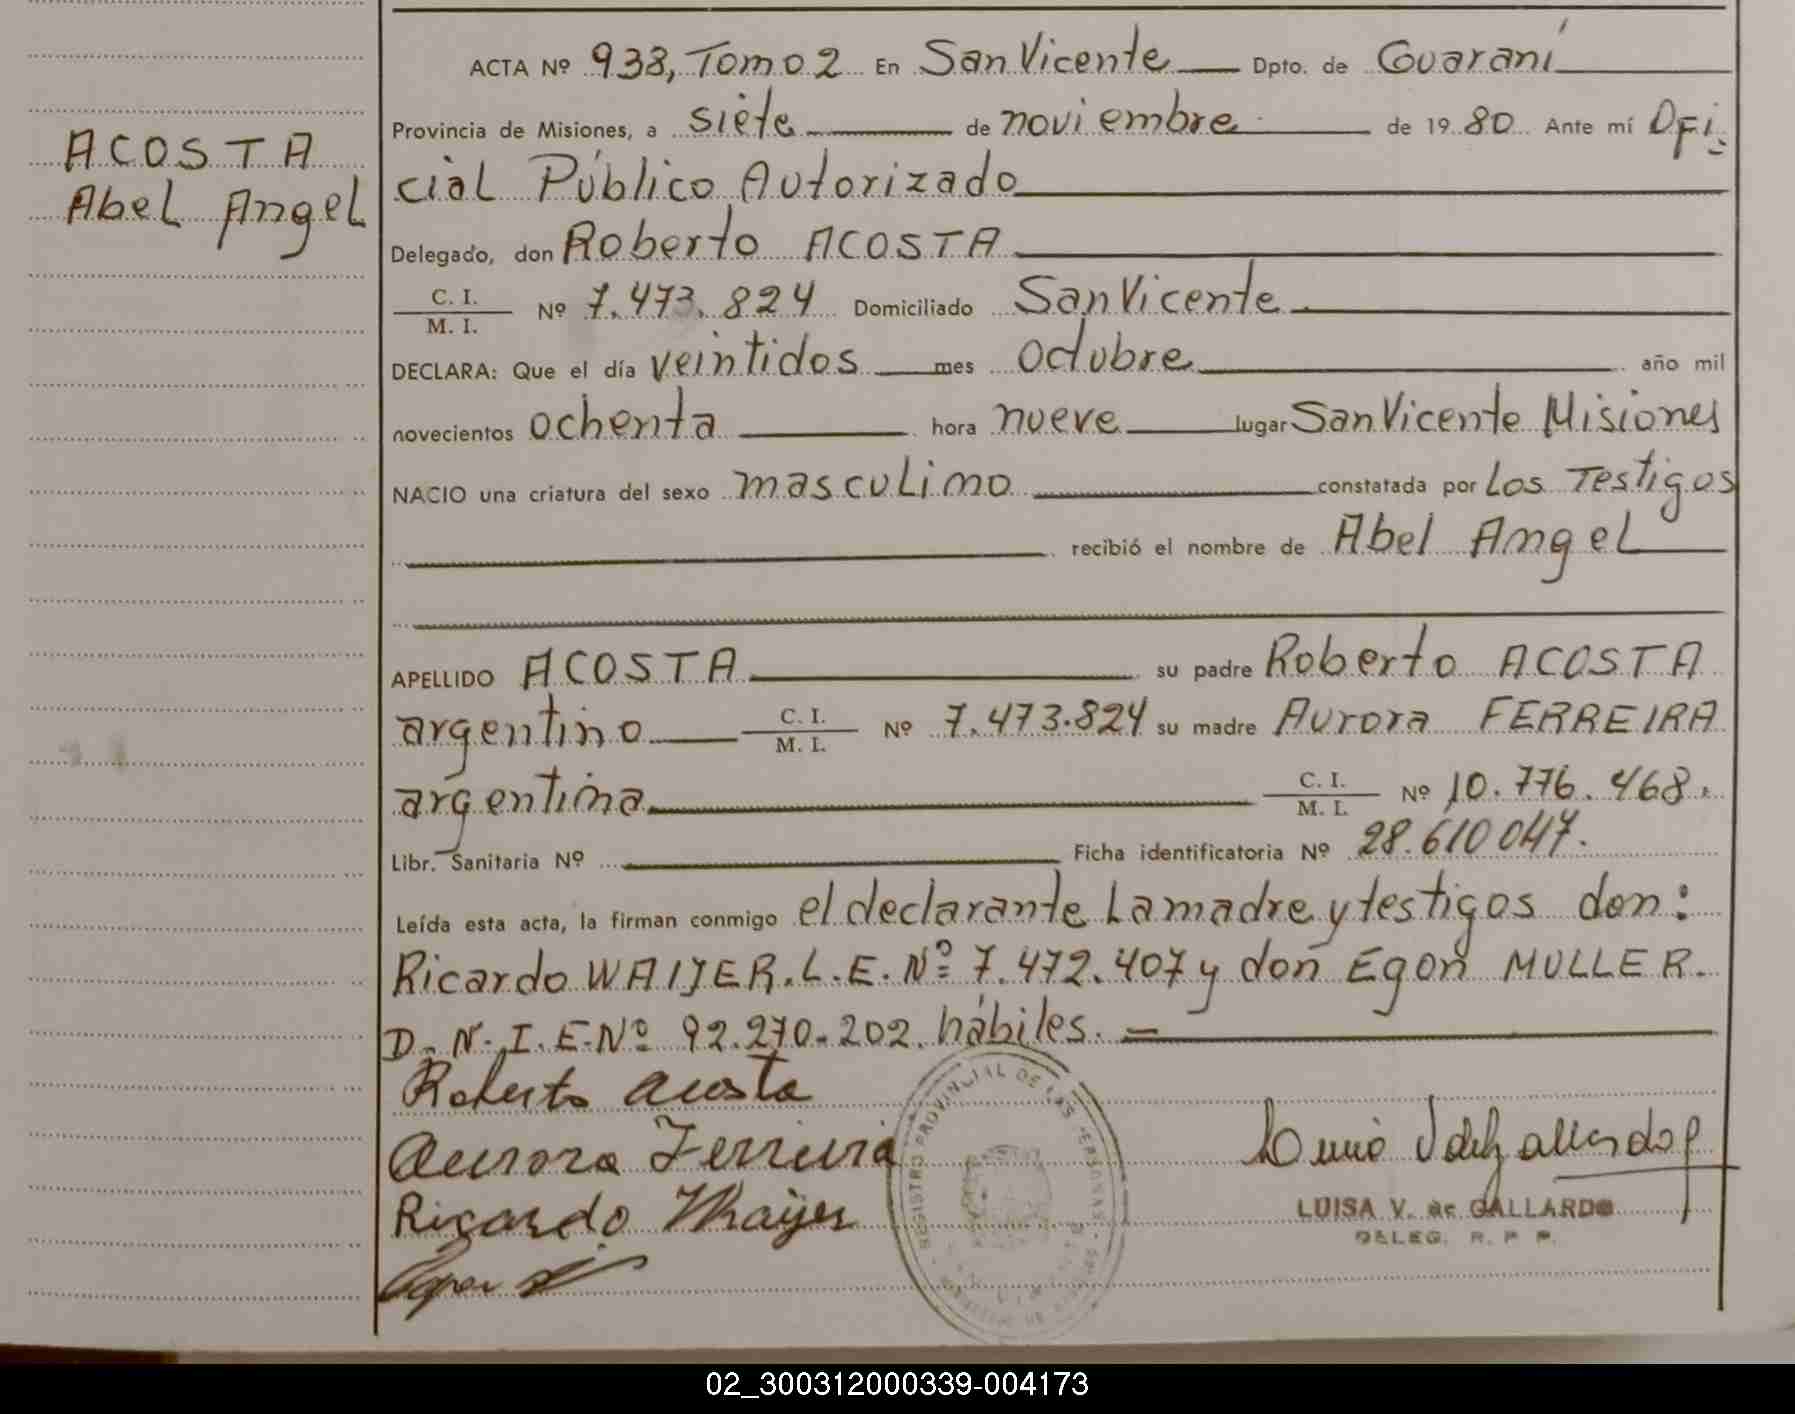 ACOSTA
Abel Angel
ACTA Nº 938, Tomo 2 En San Vicente Dpto. de Guaraní
Provincia de Misiones, a siete de noviembre de 1980 Ante mí Ofi
cial Público Autorizado
Delegado, don Roberto ACOSTA
C. I.
M. I. Nº 7.473.824 Domiciliado San Vicente
DECLARA: Que el día veintidos mes octubre año mil
novecientos ochenta hora nueve lugar San Vicente Misiones
NACIO una criatura del sexo masculino constatada por Los Testigos
recibió el nombre de Abel Angel
APELLIDO ACOSTA su padre Roberto ACOSTA
argentino C. I. M. I. Nº 7.473.824 su madre Aurora FERREIRA
argentina C. I. M. I. Nº 10.776.468.
Libr. Sanitaria Nº Ficha identificatoria Nº 28.610 047.
Leída esta acta, la firman conmigo el declarante La madre y testigos don:
Ricardo WAIJER. L.E. Nº 7.472.407 y don Egon MULLER.
D.N.I.E. Nº 92.270.202. hábiles. =
Roberto Acosta
Aurora Ferreira
Ricardo
REGISTRO PROVINCIAL DE LAS PERSONAS
LUISA V. de GALLARDO
DELEG. R. P. P.
02_300312000339-004173